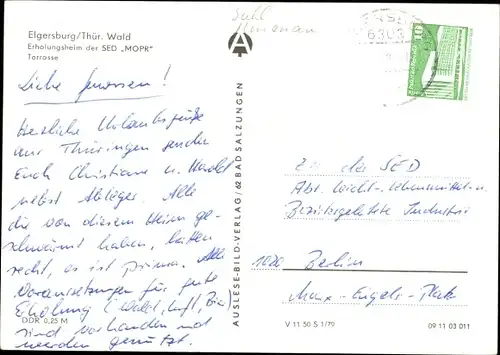 Elgersburg/Thür. Wald
Erholungsheim der SED „MOPR“
Terrasse
Suhl
Ilmenau
6303
10
Liebe Genossen!
Herzliche Urlaubsgrüße
aus Thüringen senden
Euch Christiane u. Harald
nebst Ableger. Alle
die von diesem Heim ge-
schwärmt haben, hatten
recht, es ist prima. Alle
Voraussetzungen für gute
Erholung (Wald, Luft, Bier)
sind vorhanden und
werden genutzt.
DDR 0,25 M
AUSLESE-BILD-VERLAG/62 BAD SALZUNGEN
An die SED
Abt. Leicht-, Lebensmittel- u.
Bezirksgeleitete Industrie
1020 Berlin
Marx-Engels-Platz
V 11 50 S 1/79
09 11 03 011